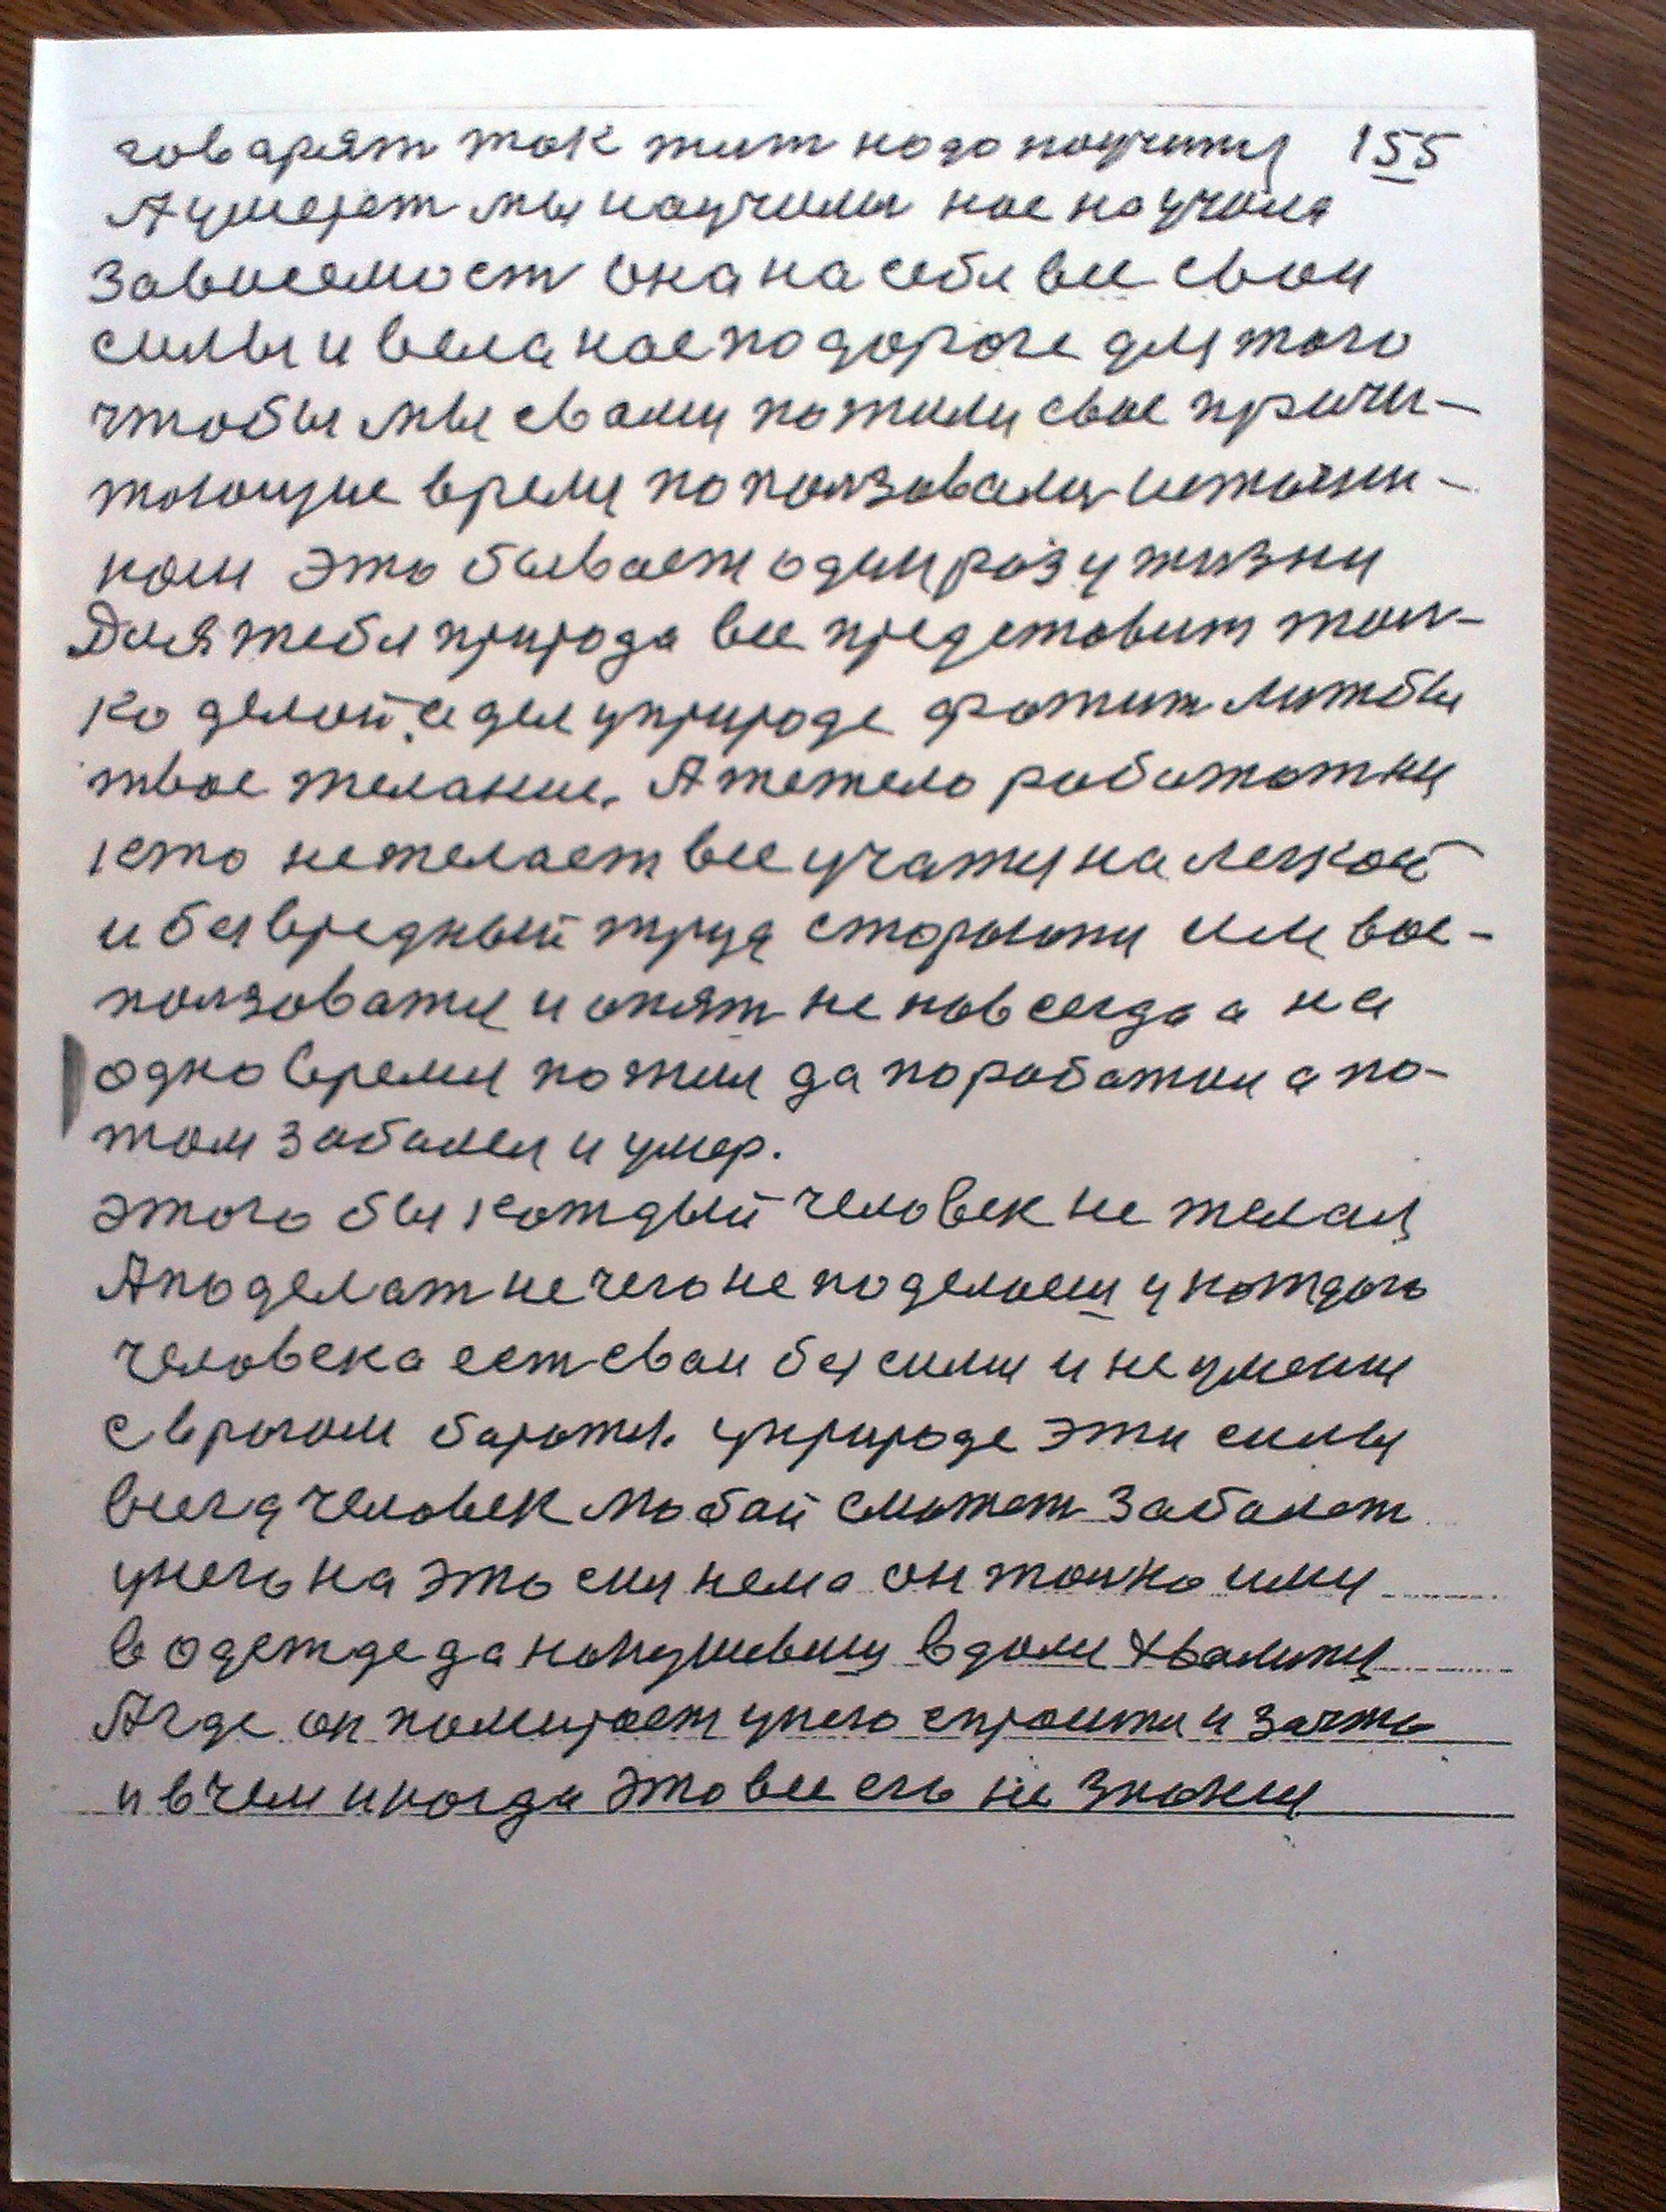 говарят так жит надо поучится 155
А умерет мы научились нас научила
зависемост она на себя все свои
силы и вела нас по дороге для того
чтобы мы сваи пожили свое причи-
тающие время попользовались источни-
ком это бывает один раз у жизни
Для тебя природа все представит тол-
ко делой а дел у природе фатит лиж бы
твое желание. А тежело работат ни
кто нежелает все учатся на легкой
и безвредный труд стараются им вос-
пользоватся и опят не навсегда а на
одно время пожил да поработал а по-
том заболел и умер.
этого бы каждый человек не желал
А поделат нечего не поделаеш у каждого
человека ест сваи безсилия и не умения
с врагом баротся. у природе эти силы
всегда человек любой сможет заболет
у него на это сил нема он толко ими
в одежде да на кушевши в доми хвалится
А где он помирает у него спросити и за что
и в чем и когда это все его не знание